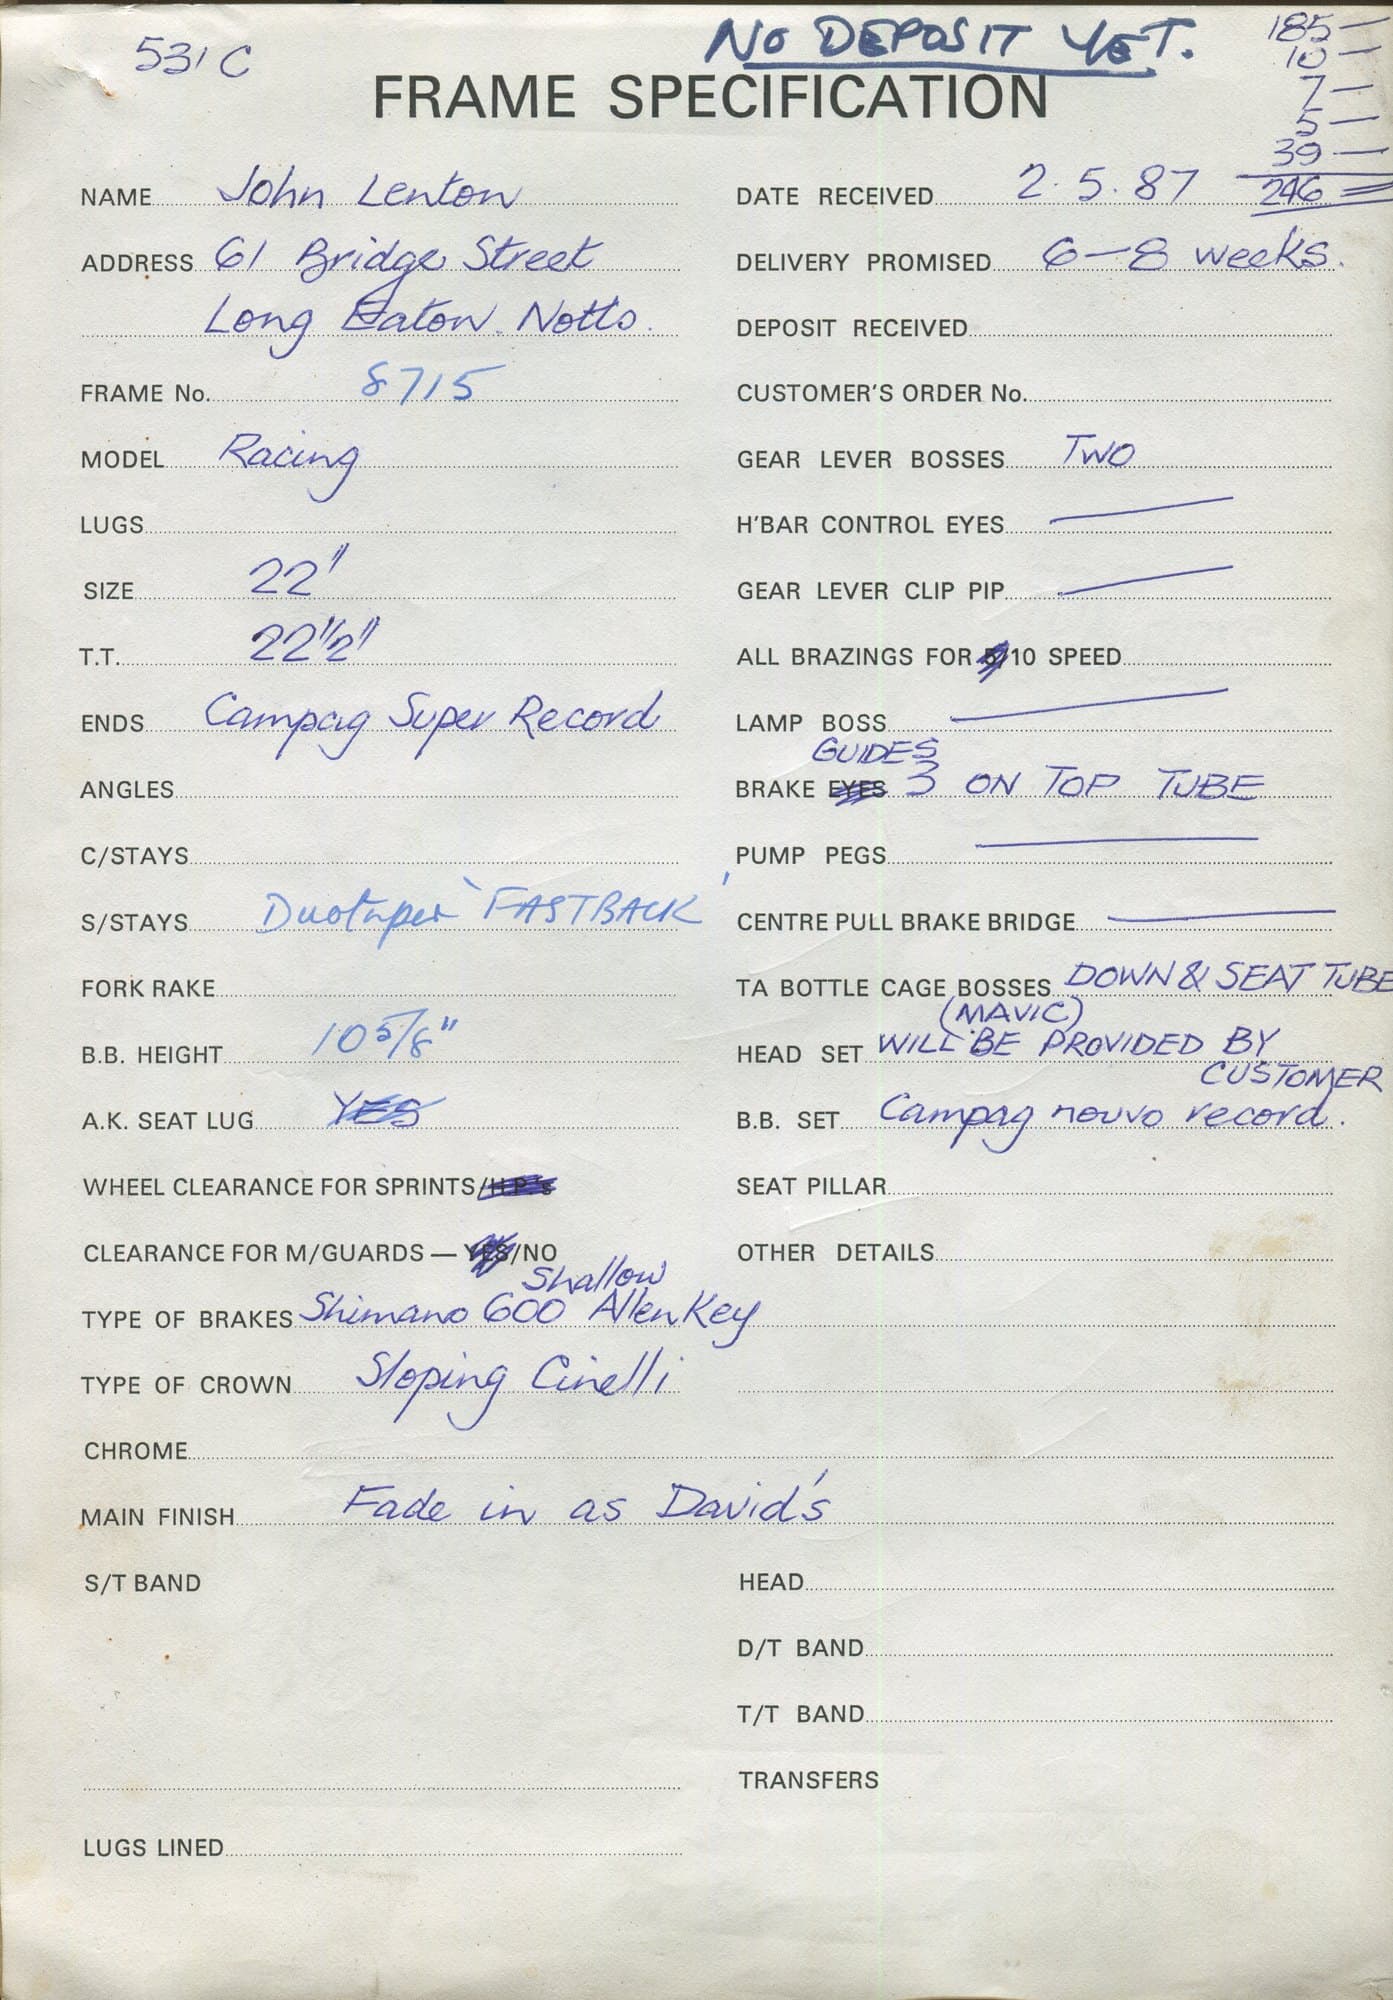 531 C
NO DEPOSIT YET.
185 —
10 —
7 —
5 —
39 —
246
FRAME SPECIFICATION
NAME John Lenton
ADDRESS 61 Bridge Street
Long Eaton. Notts.
FRAME No. 8715
MODEL Racing
LUGS
SIZE 22"
T.T. 22 1/2"
ENDS Campag Super Record
ANGLES
C/STAYS
S/STAYS Duotaper 'FASTBACK'
FORK RAKE
B.B. HEIGHT 10 5/8"
A.K. SEAT LUG YES
WHEEL CLEARANCE FOR SPRINTS/H.P.'s
CLEARANCE FOR M/GUARDS — YES/NO
Shallow
TYPE OF BRAKES Shimano 600 Allen Key
TYPE OF CROWN Sloping Cinelli
CHROME
MAIN FINISH Fade in as David's
S/T BAND
LUGS LINED
DATE RECEIVED 2.5.87
DELIVERY PROMISED 6–8 weeks.
DEPOSIT RECEIVED
CUSTOMER'S ORDER No.
GEAR LEVER BOSSES TWO
H'BAR CONTROL EYES
GEAR LEVER CLIP PIP
ALL BRAZINGS FOR 5/10 SPEED
LAMP BOSS
GUIDES
BRAKE EYES 3 ON TOP TUBE
PUMP PEGS
CENTRE PULL BRAKE BRIDGE
TA BOTTLE CAGE BOSSES DOWN & SEAT TUBE
(MAVIC)
HEAD SET WILL BE PROVIDED BY
CUSTOMER
B.B. SET Campag nouvo record.
SEAT PILLAR
OTHER DETAILS
HEAD
D/T BAND
T/T BAND
TRANSFERS